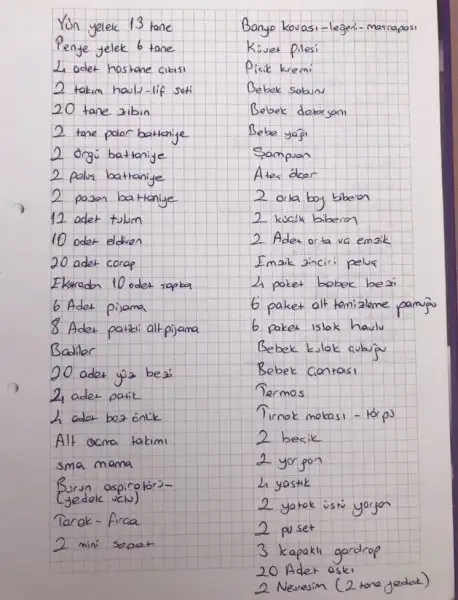 Yün yelek 13 tane
Penye yelek 6 tane
4 adet hastane çıkışı
2 takım havlu-lif seti
20 tane zıbın
2 tane polar battaniye
2 örgü battaniye
2 peluş battaniye
2 pazen battaniye
12 adet tulum
10 adet eldiven
20 adet çorap
Ekstradan 10 adet şapka
6 Adet pijama
8 Adet patikli alt pijama
Badiler
20 adet yüz bezi
4 adet patik
4 adet bez önlük
Alt açma takımı
sma mama
Burun aspiratörü-
(yedek uclu)
Tarak-fırça
2 mini sepet
Banyo kovası-legeni-maşrapası
Küvet filesi
Pişik kremi
Bebek sabunu
Bebek deterjanı
Bebe yağı
Şampuan
Ateş ölçer
2 orta boy biberon
2 küçük biberon
2 Adet orta uç emzik
Emzik zinciri peluş
4 paket bebek bezi
6 paket alt temizleme pamuğu
6 paket ıslak havlu
Bebek kulak çubuğu
Bebek Çantası
Termos
Tırnak makası - törpü
2 beşik
2 yorgan
4 yastık
2 yatak üstü yorgan
2 puset
3 kapaklı gardrop
20 Adet askı
2 Nevresim (2 tane yedek)